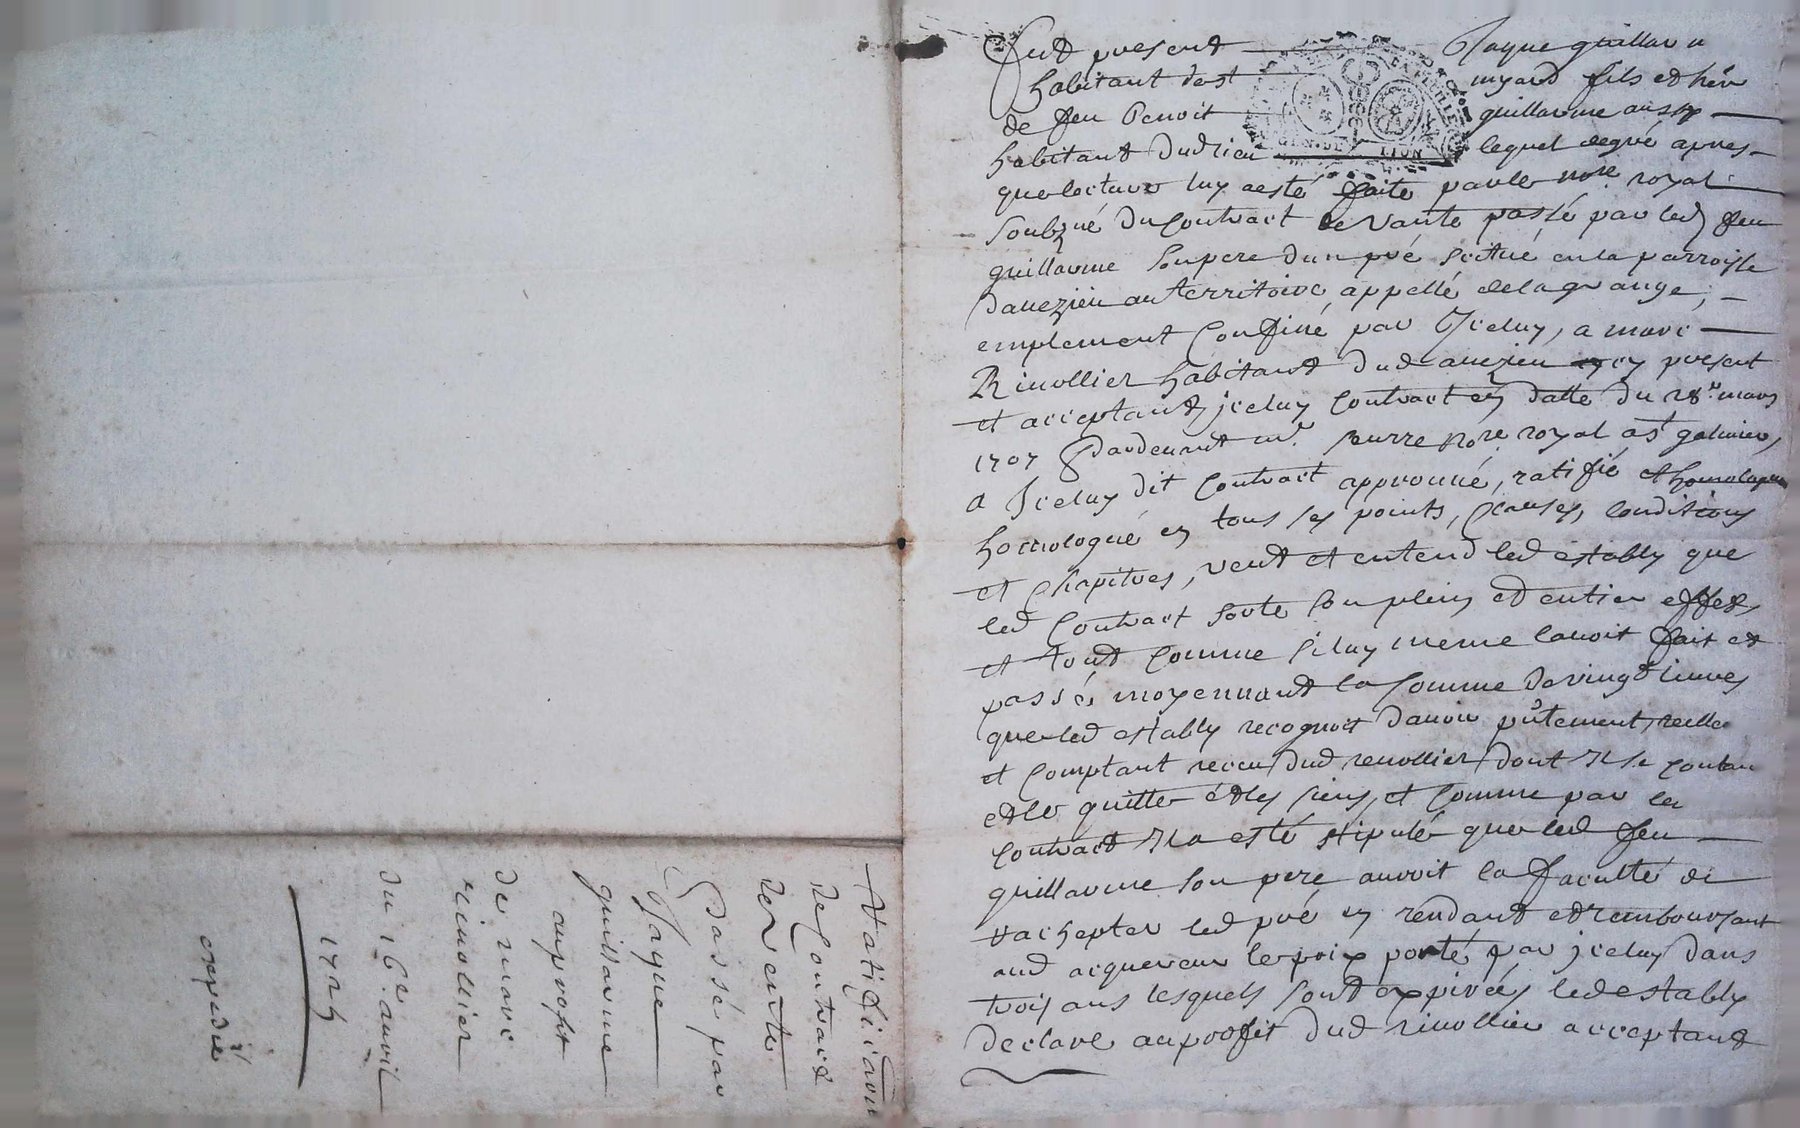 Fut present Jaque guillarme
habitant de st myard fils et her
de feu Benoit guillarme aussy
habitant dud lieu lequel de gré apres
que lecture luy a esté faite par le nore royal
soubzné du contract de vante passé par led feu
guillarme son pere dun pré scitué en la parroisse
davezieu au territoire appellé de la grange,
emplement confiné par Jceluy, a marc
Rivollier habitant dud avezieu icy present
et acceptant, jceluy contract en datte du 28e mars
1707 Pardevant me nore royal a st galmier,
a Jceluy dit contract approuvé, ratifié et homologué
homologué en tous ses points, clauses, conditions
et chapitres, veut et entend led estably que
led contract sorte son plein et entier effet,
et tout comme si luy meme lavoit fait et
passé, moyennant la somme de vingt livres
que led estably recognoit davoir pntement, reelle
et comptant receu dud rivollier dont Il se conten
et le quitte et les siens, et comme par led
contract Il a esté stipulé que led feu
guillarme son pere auroit la faculté de
rachepter led pré en rendant et remboursant
aud acquereur le prix porté par jceluy dans
trois ans lesquels sont expirés, led estably
declare au profit dud rivollier acceptant
GEN. DE LION
Ratiffication
de contract
de vente
Passé par
Jaque
guillarme
au profit
de marc
rivollier
du 16e avril
1725
expedié